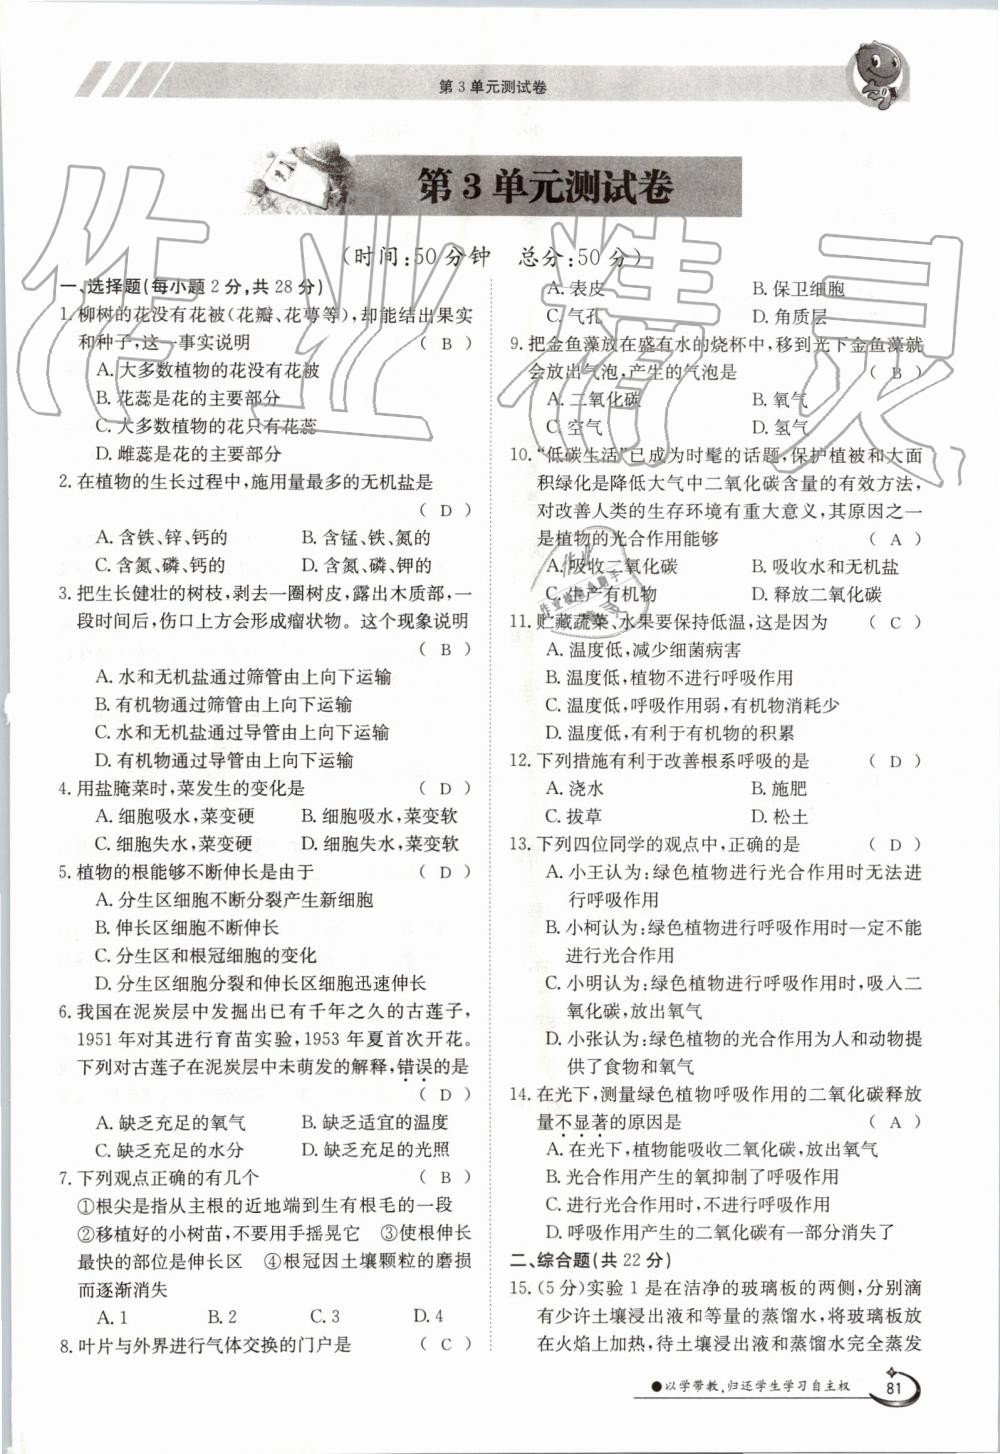 第3单元测试卷
第3单元测试卷
(时间:50分钟 总分:50分)
一、选择题(每小题2分,共28分)
1. 柳树的花没有花被(花瓣、花萼等),却能结出果实
和种子,这一事实说明 ( B )
A. 大多数植物的花没有花被
B. 花蕊是花的主要部分
C. 大多数植物的花只有花蕊
D. 雌蕊是花的主要部分
2. 在植物的生长过程中,施用量最多的无机盐是
( D )
A. 含铁、锌、钙的 B. 含锰、铁、氮的
C. 含氮、磷、钙的 D. 含氮、磷、钾的
3. 把生长健壮的树枝,剥去一圈树皮,露出木质部,一
段时间后,伤口上方会形成瘤状物。这个现象说明
( B )
A. 水和无机盐通过筛管由上向下运输
B. 有机物通过筛管由上向下运输
C. 水和无机盐通过导管由上向下运输
D. 有机物通过导管由上向下运输
4. 用盐腌菜时,菜发生的变化是 ( D )
A. 细胞吸水,菜变硬 B. 细胞吸水,菜变软
C. 细胞失水,菜变硬 D. 细胞失水,菜变软
5. 植物的根能够不断伸长是由于 ( D )
A. 分生区细胞不断分裂产生新细胞
B. 伸长区细胞不断伸长
C. 分生区和根冠细胞的变化
D. 分生区细胞分裂和伸长区细胞迅速伸长
6. 我国在泥炭层中发掘出已有千年之久的古莲子,
1951年对其进行育苗实验,1953年夏首次开花。
下列对古莲子在泥炭层中未萌发的解释,错误的是
( D )
A. 缺乏充足的氧气 B. 缺乏适宜的温度
C. 缺乏充足的水分 D. 缺乏充足的光照
7. 下列观点正确的有几个 ( B )
①根尖是指从主根的近地端到生有根毛的一段
②移植好的小树苗,不要用手摇晃它 ③使根伸长
最快的部位是伸长区 ④根冠因土壤颗粒的磨损
而逐渐消失
A. 1 B. 2 C. 3 D. 4
8. 叶片与外界进行气体交换的门户是 ( C )
A. 表皮 B. 保卫细胞
C. 气孔 D. 角质层
9. 把金鱼藻放在盛有水的烧杯中,移到光下金鱼藻就
会放出气泡,产生的气泡是 ( B )
A. 二氧化碳 B. 氧气
C. 空气 D. 氢气
10. “低碳生活”已成为时髦的话题,保护植被和大面
积绿化是降低大气中二氧化碳含量的有效方法,
对改善人类的生存环境有重大意义,其原因之一
是植物的光合作用能够 ( A )
A. 吸收二氧化碳 B. 吸收水和无机盐
C. 生产有机物 D. 释放二氧化碳
11. 贮藏蔬菜、水果要保持低温,这是因为 ( C )
A. 温度低,减少细菌病害
B. 温度低,植物不进行呼吸作用
C. 温度低,呼吸作用弱,有机物消耗少
D. 温度低,有利于有机物的积累
12. 下列措施有利于改善根系呼吸的是 ( D )
A. 浇水 B. 施肥
C. 拔草 D. 松土
13. 下列四位同学的观点中,正确的是 ( D )
A. 小王认为:绿色植物进行光合作用时无法进
行呼吸作用
B. 小柯认为:绿色植物进行呼吸作用时一定不能
进行光合作用
C. 小明认为:绿色植物进行呼吸作用时,吸入二
氧化碳,放出氧气
D. 小张认为:绿色植物的光合作用为人和动物提
供了食物和氧气
14. 在光下,测量绿色植物呼吸作用的二氧化碳释放
量不显著的原因是 ( A )
A. 在光下,植物能吸收二氧化碳,放出氧气
B. 光合作用产生的氧抑制了呼吸作用
C. 进行光合作用时,不进行呼吸作用
D. 呼吸作用产生的二氧化碳有一部分消失了
二、综合题(共22分)
15. (5分)实验1是在洁净的玻璃板的两侧,分别滴
有少许土壤浸出液和等量的蒸馏水,将玻璃板放
在火焰上加热,待土壤浸出液和蒸馏水完全蒸发
●以学带教,归还学生学习自主权 81
作业精灵